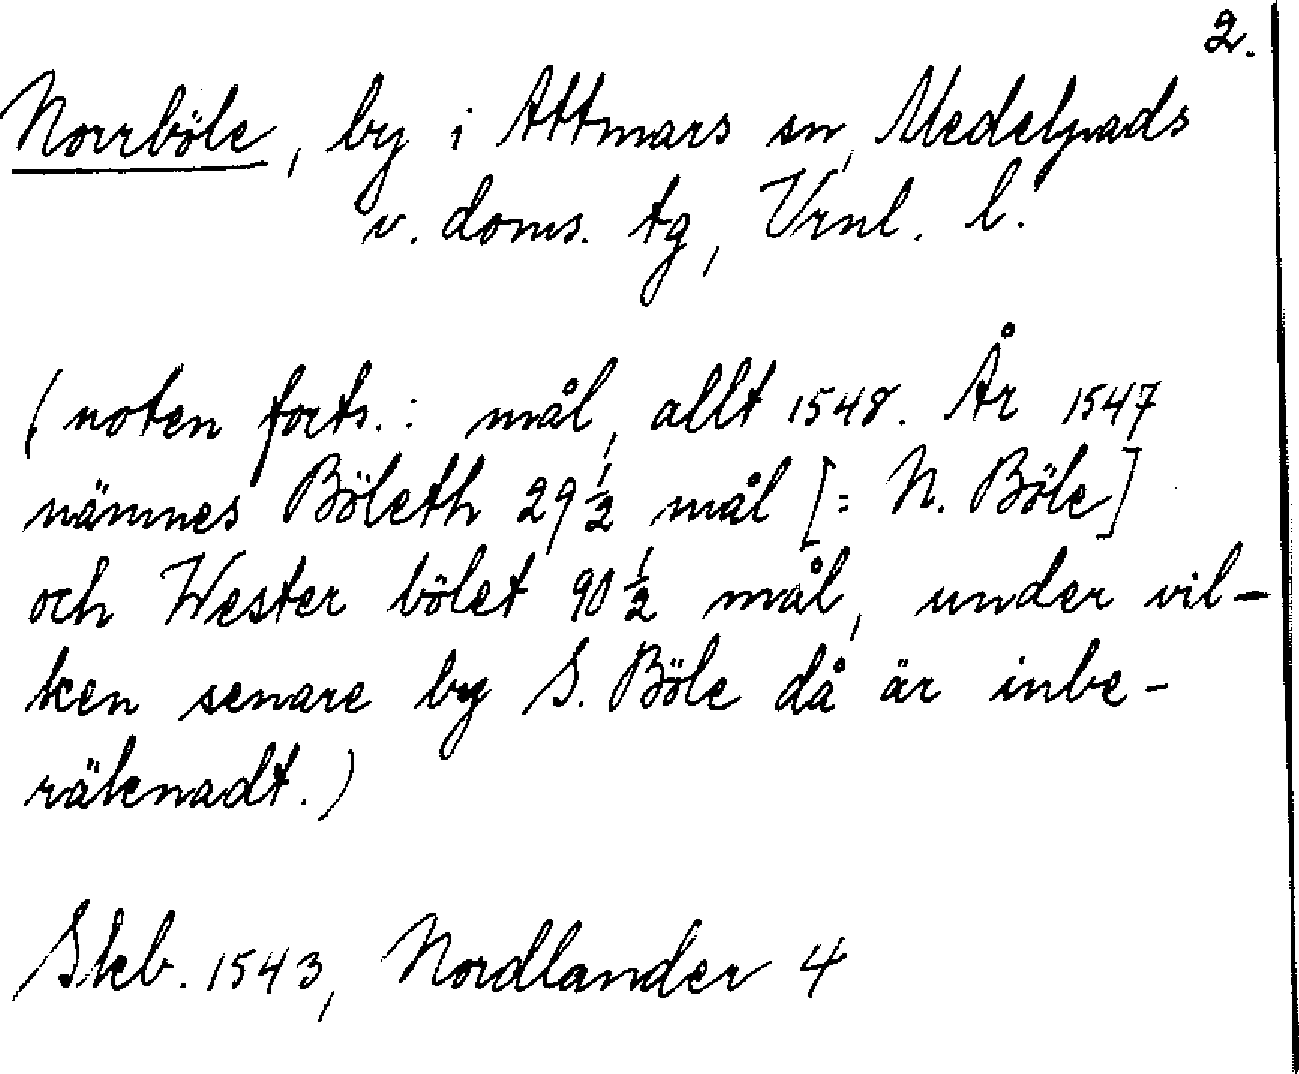 2.
Norrböle, by i Attmars sn, Medelpads
v. doms. tg, Vrnl. l.
(noten forts.: mål, allt 1548. År 1547
nämnes Böleth 29 1/2 mål [= N. Böle]
och Wester bölet 90 1/2 mål, under vil-
ken senare by S. Böle då är inbe-
räknadt.)
Skb. 1543, Nordlander 4